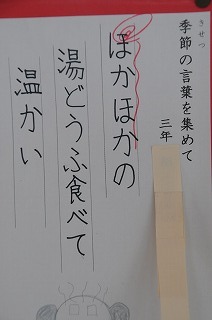 きせつ
季節の言葉を集めて
三年
ほかほかの
湯どうふ食べて
温かい